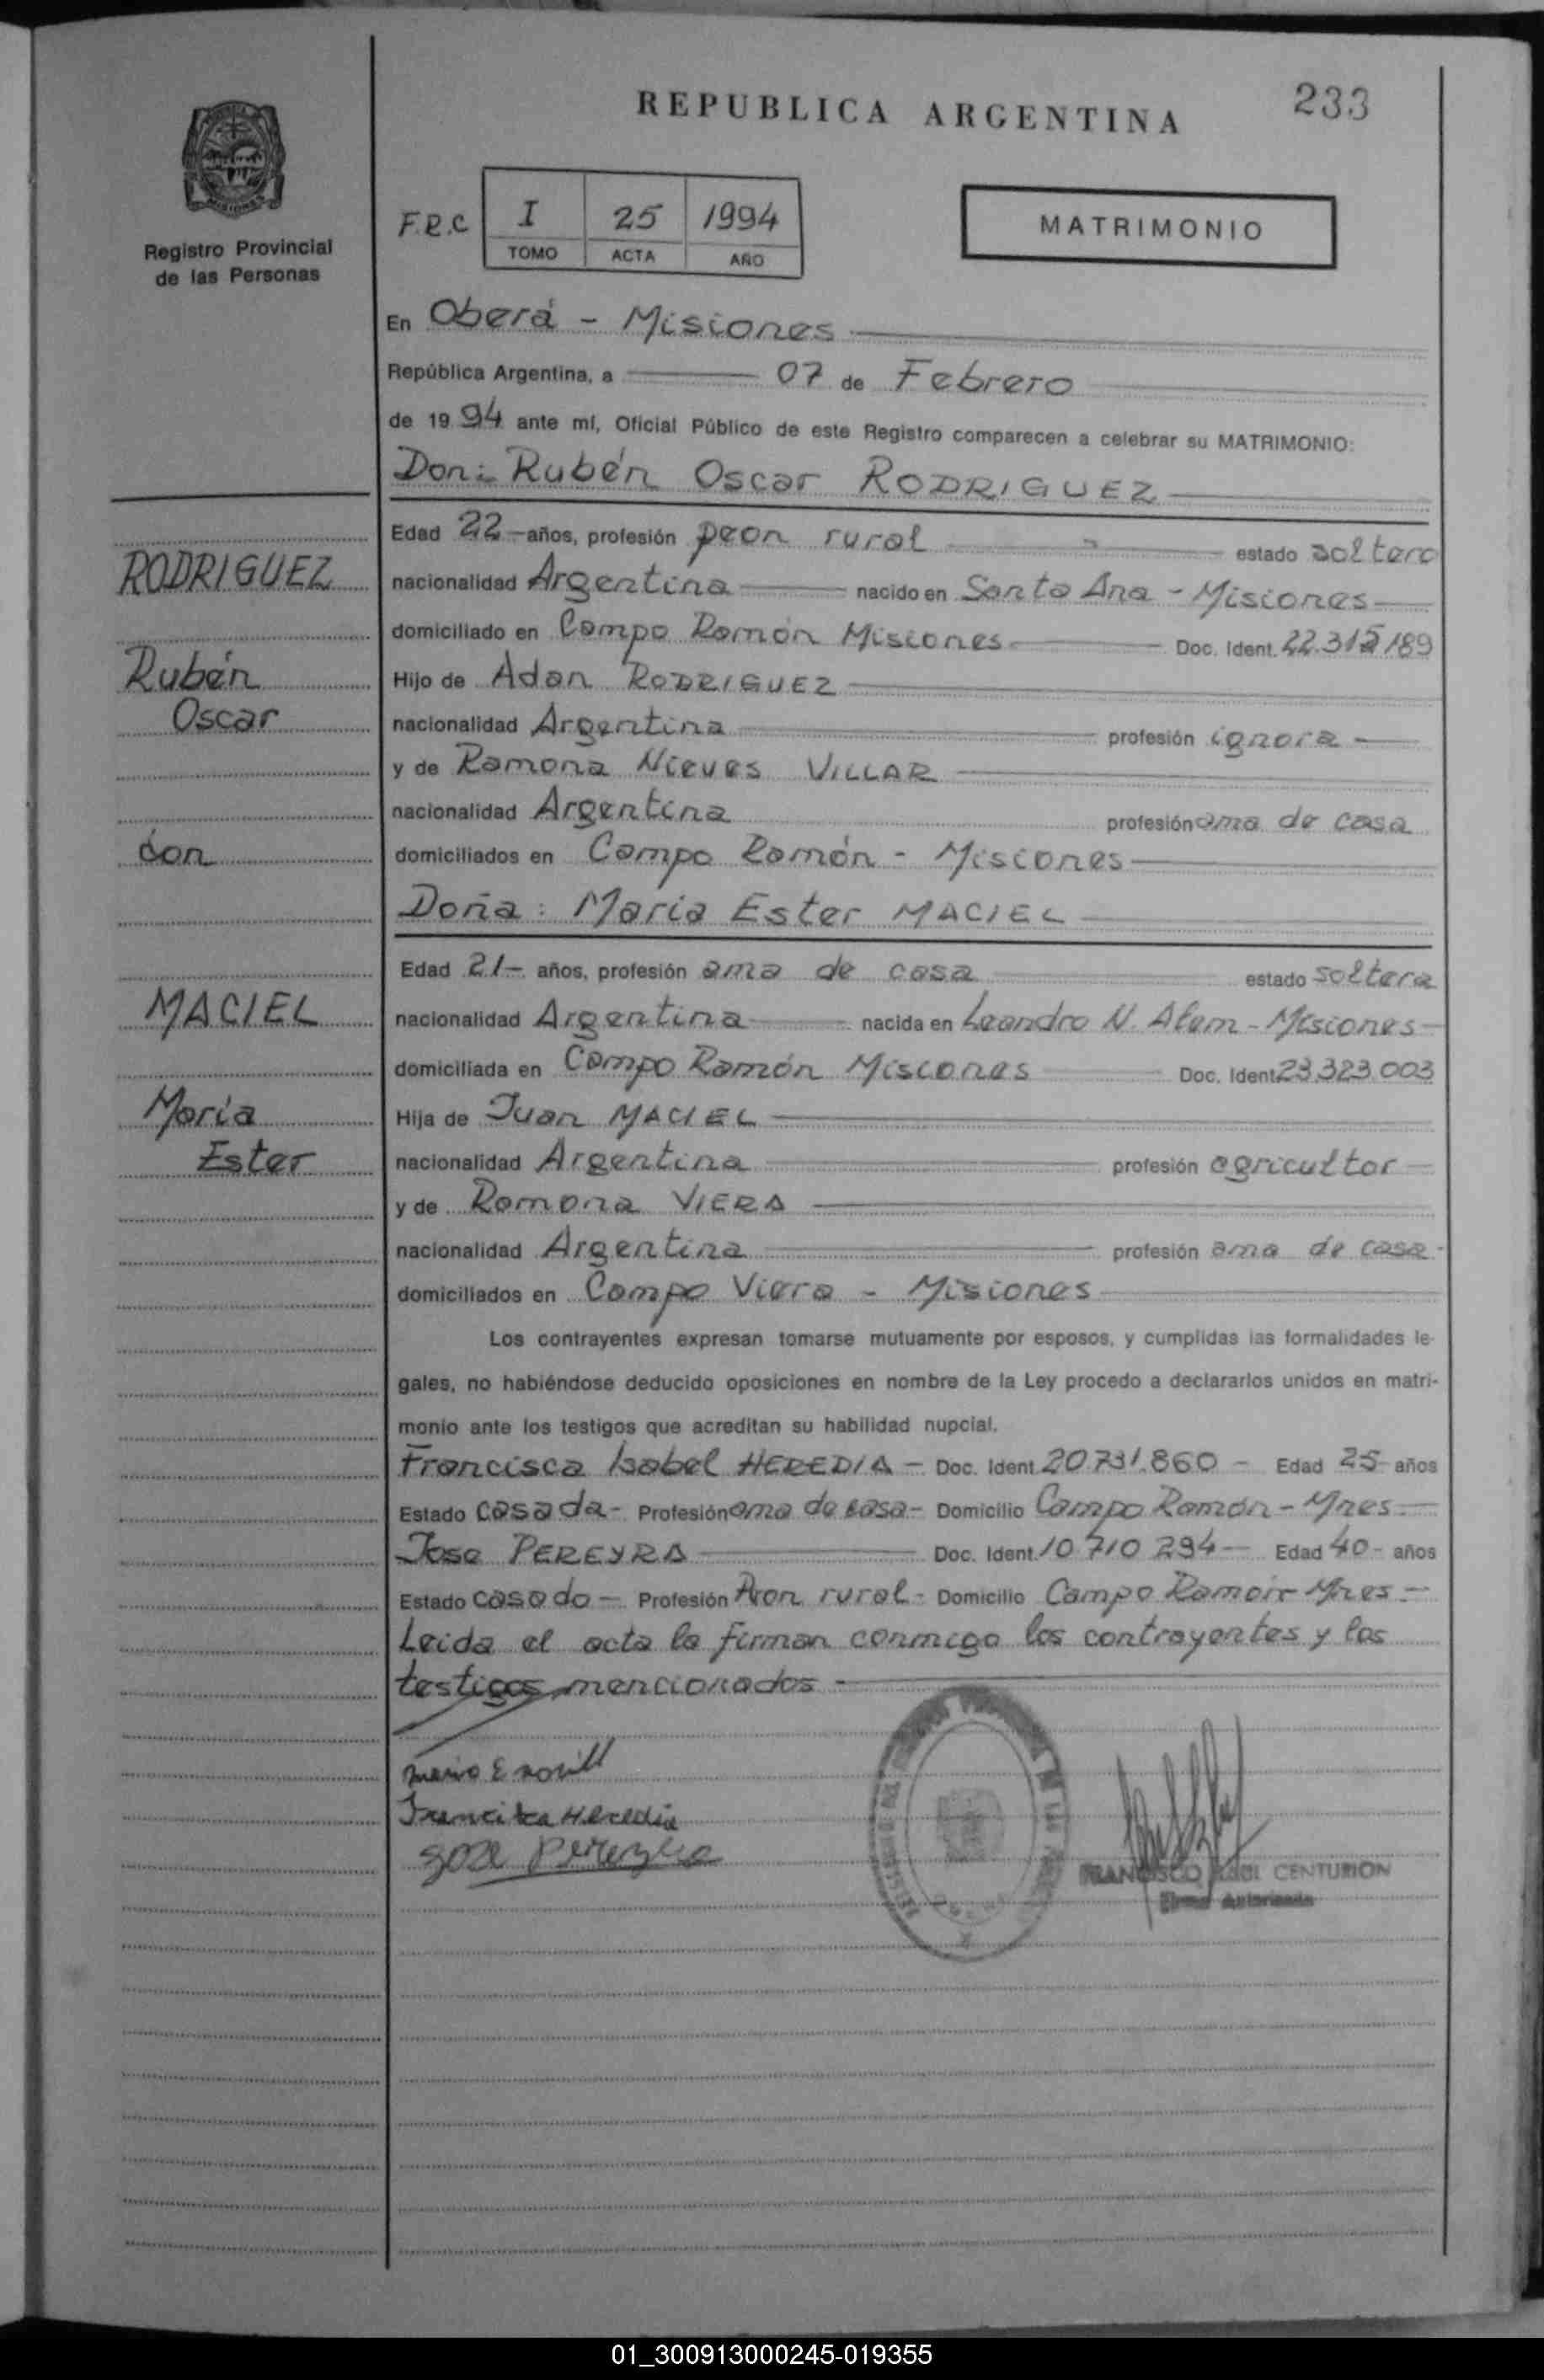 REPUBLICA ARGENTINA
233
Registro Provincial
de las Personas
F.R.C
I 25 1994
TOMO ACTA AÑO
MATRIMONIO
En Oberá - Misiones
República Argentina, a 07 de Febrero
de 1994 ante mí, Oficial Público de este Registro comparecen a celebrar su MATRIMONIO:
Don: Rubén Oscar RODRIGUEZ
Edad 22 años, profesión peon rural estado soltero
nacionalidad Argentina nacido en Santa Ana - Misiones
domiciliado en Campo Ramón Misiones Doc. Ident. 22.315189
Hijo de Adan RODRIGUEZ
nacionalidad Argentina profesión ignora
y de Ramona Nieves VILLAR
nacionalidad Argentina profesión ama de casa
domiciliados en Campo Ramón - Misiones
Doña: Maria Ester MACIEL
Edad 21 años, profesión ama de casa estado soltera
nacionalidad Argentina nacida en Leandro N. Alem - Misiones
domiciliada en Campo Ramón Misiones Doc. Ident. 23.323.003
Hija de Juan MACIEL
nacionalidad Argentina profesión agricultor
y de Ramona VIERA
nacionalidad Argentina profesión ama de casa
domiciliados en Campo Viera - Misiones
Los contrayentes expresan tomarse mutuamente por esposos, y cumplidas las formalidades le-
gales, no habiéndose deducido oposiciones en nombre de la Ley procedo a declararlos unidos en matri-
monio ante los testigos que acreditan su habilidad nupcial.
Francisca Isabel HEREDIA - Doc. Ident 20.731.860 - Edad 25 años
Estado casada - Profesión ama de casa - Domicilio Campo Ramón - Mnes
Jose PEREYRA Doc. Ident. 10.710 294 Edad 40 - años
Estado casado - Profesión Peon rural - Domicilio Campo Ramón Mnes -
Leida el acta la firman conmigo los contrayentes y los
testigos mencionados
RODRIGUEZ
Rubén
Oscar
con
MACIEL
Maria
Ester
Francisca Heredia
Jose Pereyra
FRANCISCO CENTURION
Firma Autorizada
01_300913000245-019355